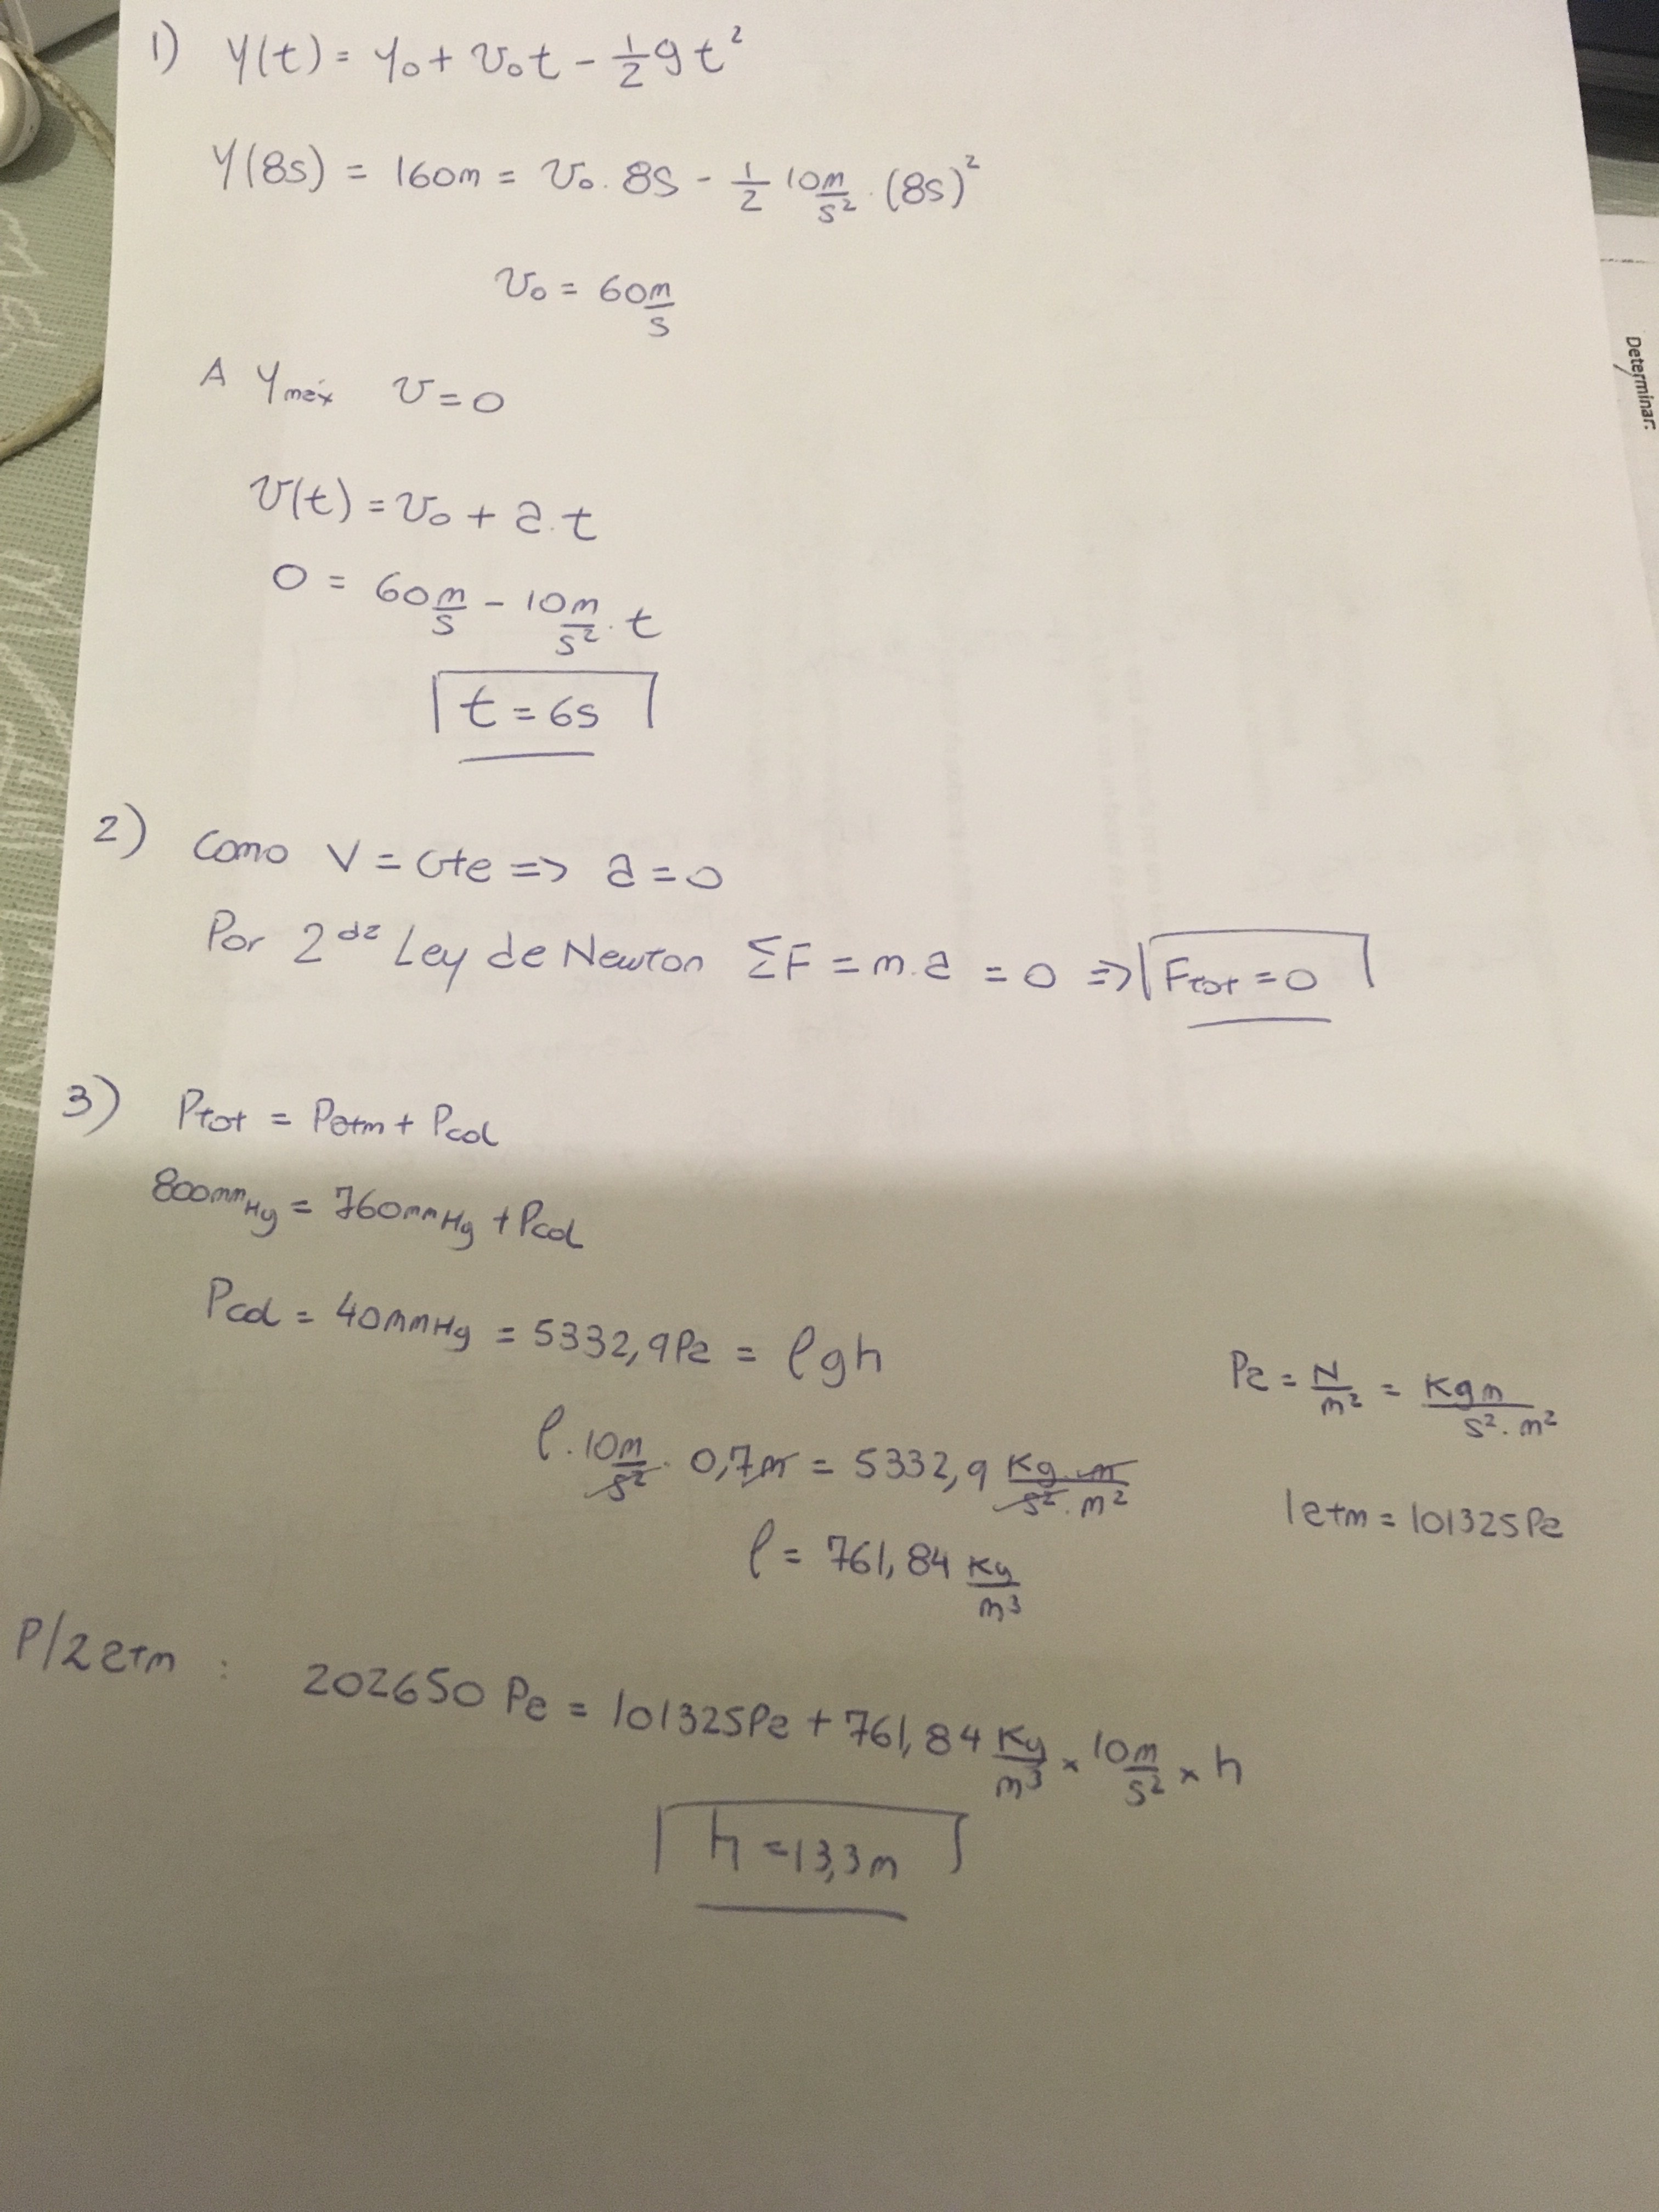 1) Y(t) = Y₀ + V₀t - 1/2 g t²
Y(8s) = 160m = V₀ . 8s - 1/2 10 m/s² . (8s)²
V₀ = 60 m/s
A Ymáx V = 0
V(t) = V₀ + a.t
0 = 60 m/s - 10 m/s² . t
t = 6s
2) Como V = cte => a = 0
Por 2da Ley de Newton ΣF = m.a = 0 => Ftot = 0
3) Ptot = Patm + Pcol
800mmHg = 760mmHg + Pcol
Pcol = 40mmHg = 5332,9Pa = ρgh
Pa = N/m² = Kg m/s². m²
ρ. 10 m/s² . 0,7m = 5332,9 Kg.m/s². m²
1atm = 101325Pa
ρ = 761,84 Kg/m³
P/2atm : 202650 Pa = 101325Pa + 761,84 Kg/m³ x 10 m/s² x h
h = 13,3m
Determinar: